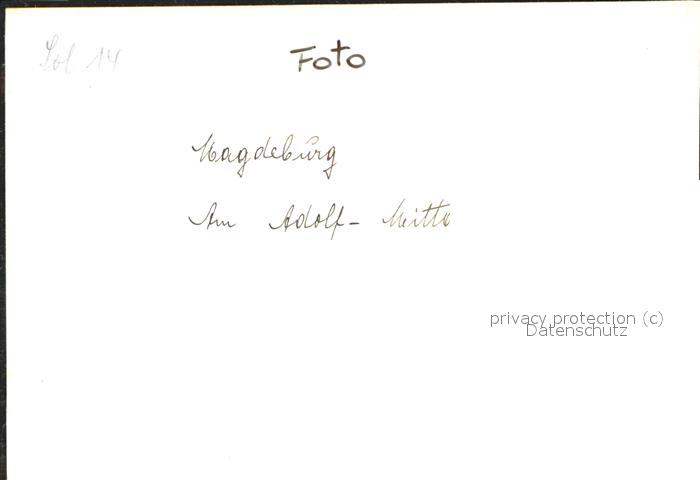 Sol 14
Foto
Magdeburg
Am Adolf-Mitta
privacy protection (c)
Datenschutz